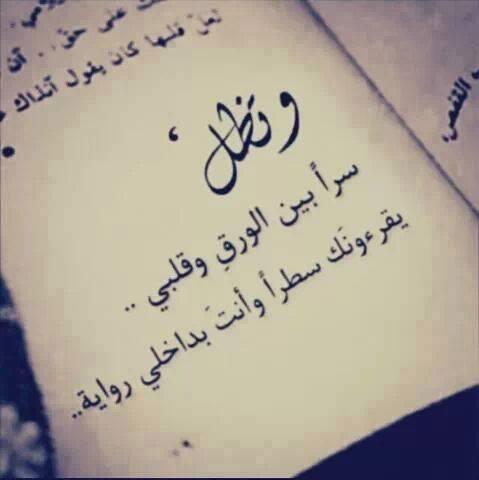 على حق .. أن
لعل قلبها كان يقول آنذاك
القفص،
و تظل ،
سراً بين الورقِ وقلبي ..
يقرءونَك سطراً وأنتَ بداخلي رواية..